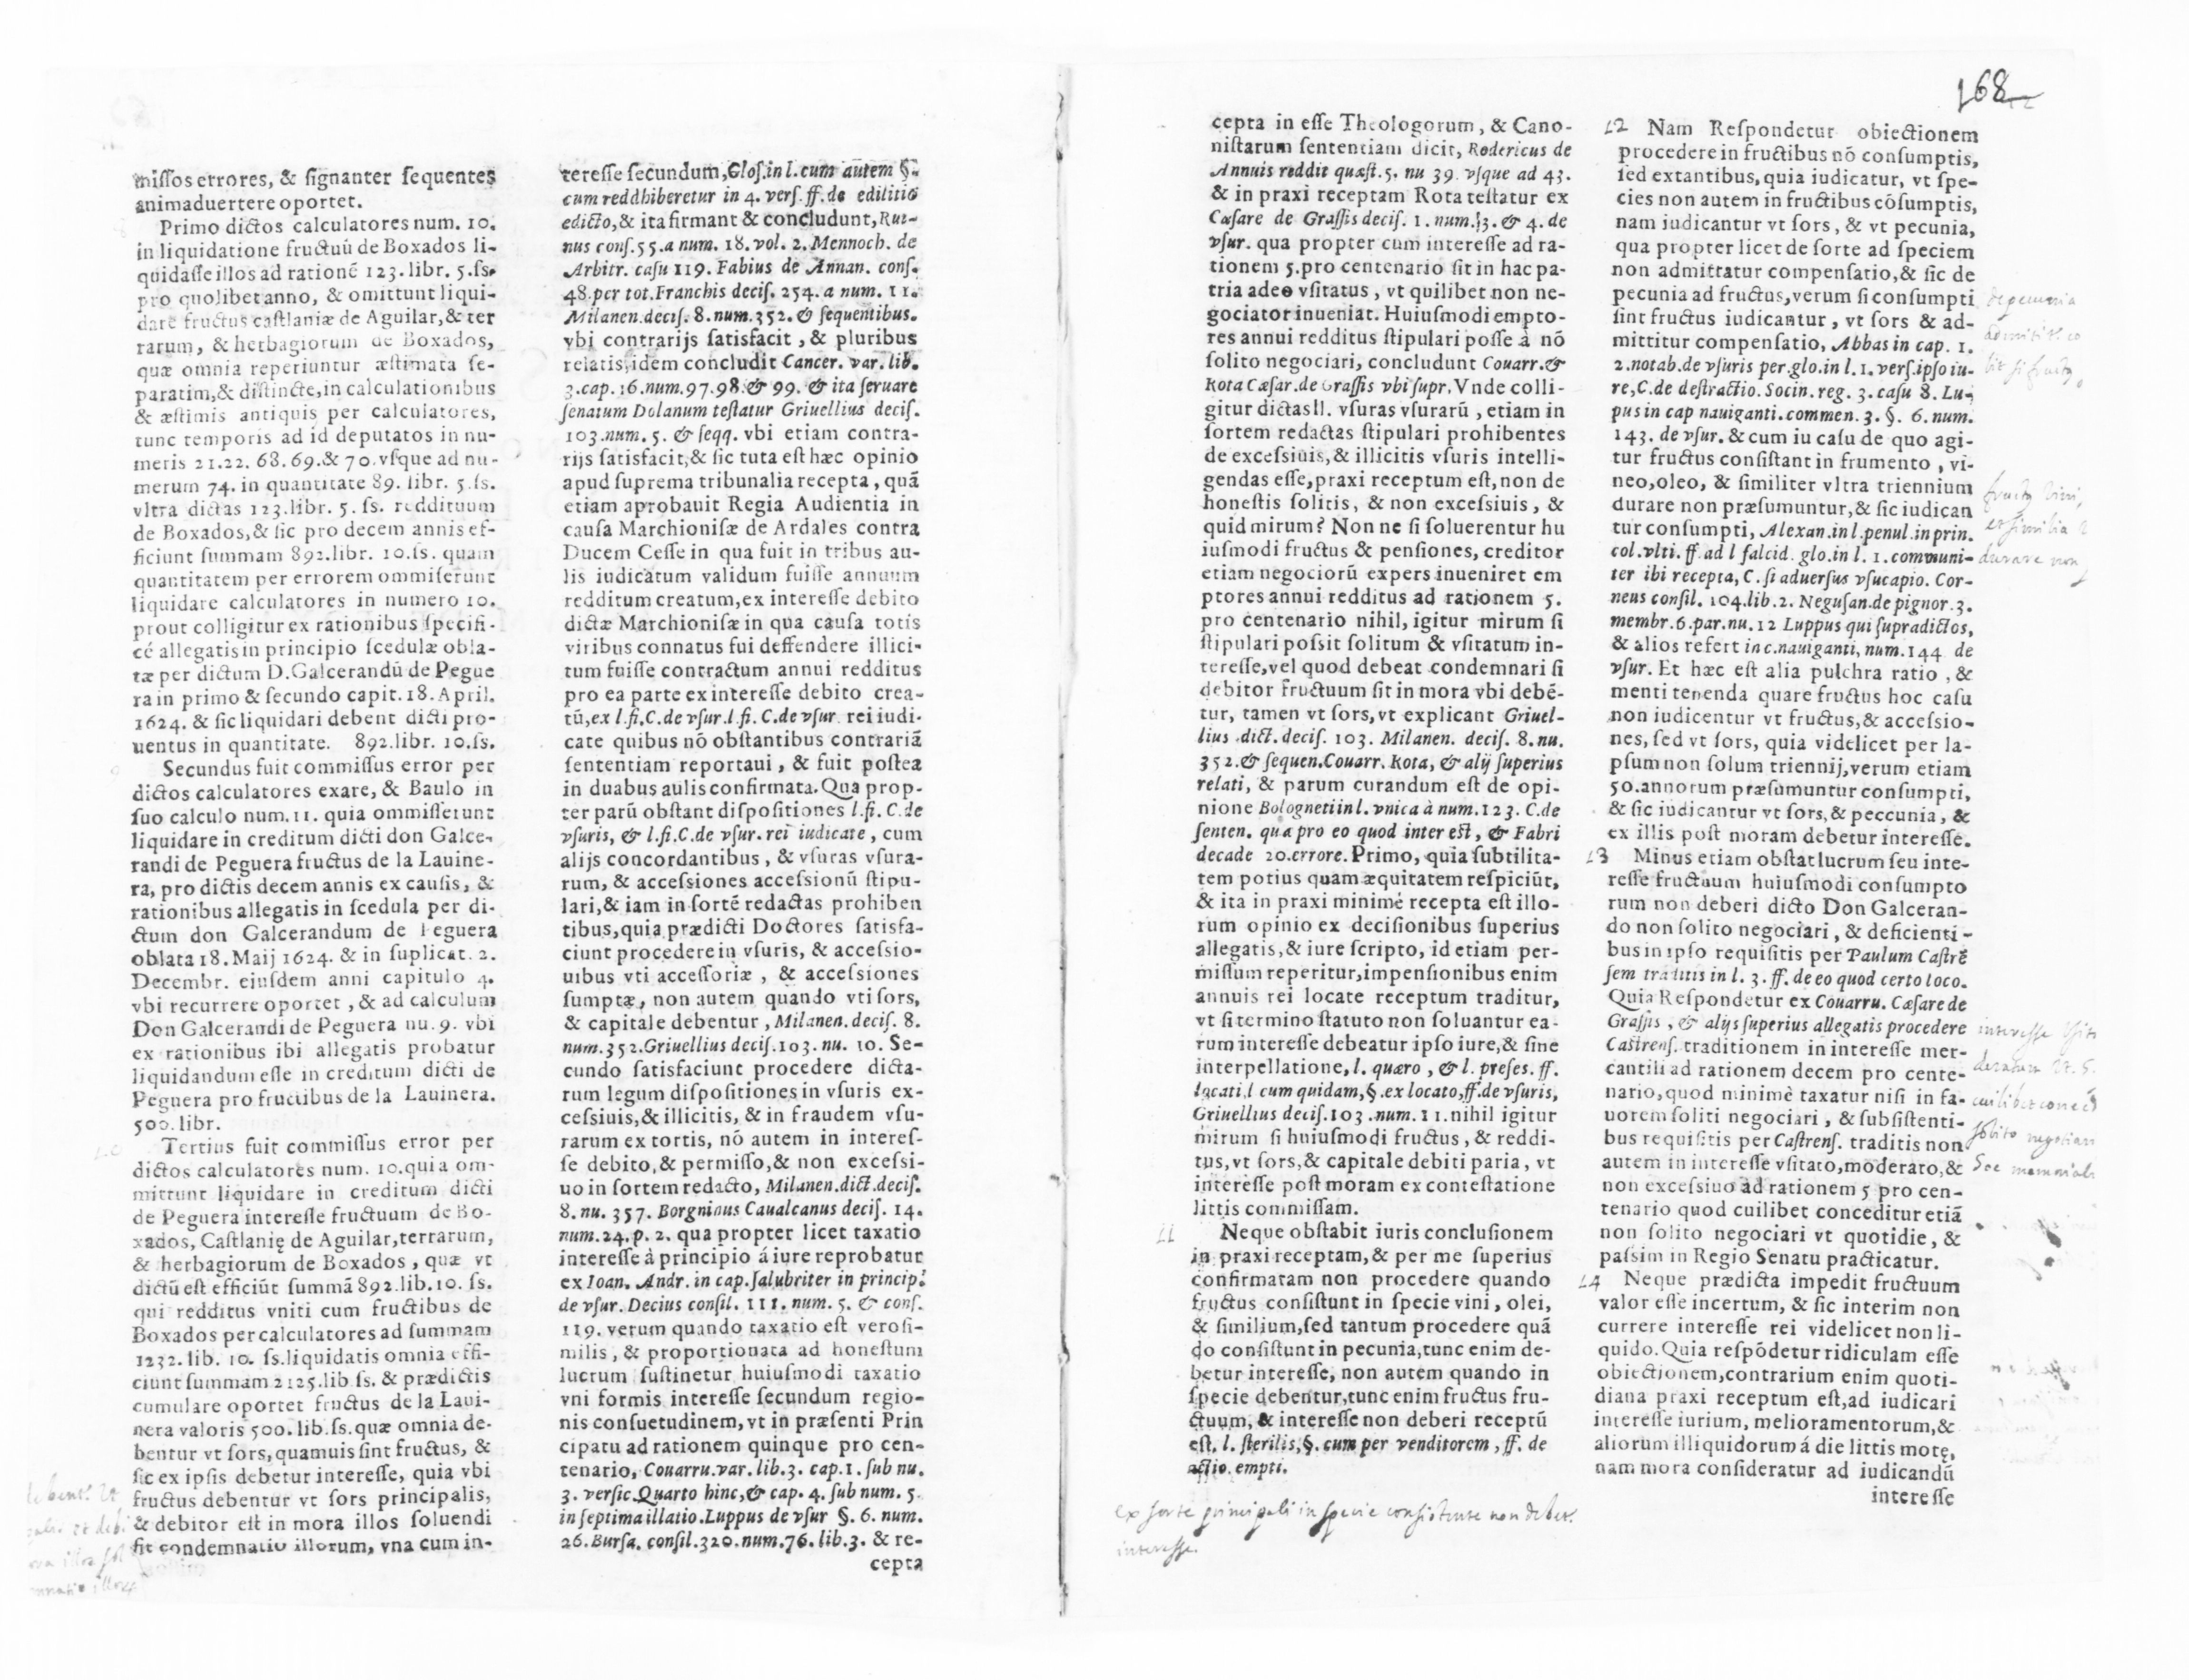 missos errores, & signanter sequentes
animaduertere oportet.
Primo dictos calculatores num. 10.
in liquidatione fructuũ de Boxados li-
quidasse illos ad rationẽ 123. libr. 5. ss.
pro quolibet anno, & omittunt liqui-
dare fructus castlaniæ de Aguilar, & ter
rarum, & herbagiorum de Boxados,
quæ omnia reperiuntur æstimata se-
paratim, & distincte, in calculationibus
& æstimis antiquis per calculatores,
tunc temporis ad id deputatos in nu-
meris 21. 22. 68. 69. & 70. vsque ad nu-
merum 74. in quantitate 89. libr. 5. ss.
vltra dictas 123. libr. 5. ss. reddituum
de Boxados, & sic pro decem annis ef-
ficiunt summam 892. libr. 10. ss. quam
quantitatem per errorem ommiserunt
liquidare calculatores in numero 10.
prout colligitur ex rationibus specifi-
cé allegatis in principio scedulæ obla-
tæ per dictum D. Galcerandũ de Pegue
ra in primo & secundo capit. 18. April.
1624. & sic liquidari debent dicti pro-
uentus in quantitate. 892. libr. 10. ss.
Secundus fuit commissus error per
dictos calculatores exare, & Baulo in
suo calculo num. 11. quia ommisserunt
liquidare in creditum dicti don Galce-
randi de Peguera fructus de la Lauine-
ra, pro dictis decem annis ex causis, &
rationibus allegatis in scedula per di-
ctum don Galcerandum de Peguera
oblata 18. Maij 1624. & in suplicat. 2.
Decembr. ejusdem anni capitulo 4.
vbi recurrere oportet, & ad calculum
Don Galcerandi de Peguera nu. 9. vbi
ex rationibus ibi allegatis probatur
liquidandum esse in creditum dicti de
Peguera pro fructibus de la Lauinera.
500. libr.
10 Tertius fuit commissus error per
dictos calculatores num. 10. quia om-
mittunt liquidare in creditum dicti
de Peguera interesse fructuum de Bo-
xados, Castlanię de Aguilar, terrarum,
& herbagiorum de Boxados, quæ vt
dictũ est efficiũt summã 892. lib. 10. ss.
qui redditus vniti cum fructibus de
Boxados per calculatores ad summam
1232. lib. 10. ss. liquidatis omnia effi-
ciunt summam 2125. lib ss. & prædictis
cumulare oportet fructus de la Laui-
nera valoris 500. lib. ss. quæ omnia de-
bentur vt sors, quamuis sint fructus, &
sic ex ipsis debetur interesse, quia vbi
fructus debentur vt sors principalis,
& debitor est in mora illos soluendi
fit condemnatio illorum, vna cum in-
teresse secundum, Glos. in l. cum autem §.
cum reddhiberetur in 4. vers. ff. de edilitio
edicto, & ita firmant & concludunt, Rui-
nus cons. 55. a num. 18. vol. 2. Mennoch. de
Arbitr. casu 119. Fabius de Annan. cons.
48. per tot. Franchis decis. 254. a num. 11.
Milanen. decis. 8. num. 352. & sequentibus.
vbi contrarijs satisfacit, & pluribus
relatis, idem concludit Cancer. var. lib.
3. cap. 16. num. 97. 98. & 99. & ita seruare
senatum Dolanum testatur Griuellius decis.
103. num. 5. & seqq. vbi etiam contra-
rijs satisfacit, & sic tuta est hæc opinio
apud suprema tribunalia recepta, quã
etiam aprobauit Regia Audientia in
causa Marchionisæ de Ardales contra
Ducem Cesse in qua fuit in tribus au-
lis iudicatum validum fuisse annuum
redditum creatum, ex interesse debito
dictæ Marchionisæ in qua causa totis
viribus connatus fui deffendere illici-
tum fuisse contractum annui redditus
pro ea parte ex interesse debito crea-
tũ, ex l. fi. C. de vsur. l. fi. C. de vsur. rei iudi-
cate quibus nõ obstantibus contrariã
sententiam reportaui, & fuit postea
in duabus aulis confirmata. Qua prop-
ter parũ obstant dispositiones l. fi. C. de
vsuris, & l. fi. C. de vsur. rei iudicate, cum
alijs concordantibus, & vsuras vsura-
rum, & accessiones accessionũ stipu-
lari, & iam in sortẽ redactas prohiben
tibus, quia prædicti Doctores satisfa-
ciunt procedere in vsuris, & accessio-
uibus vti accessoriæ, & accessiones
sumptæ, non autem quando vti sors,
& capitale debentur, Milanen. decis. 8.
num. 352. Griuellius decis. 103. nu. 10. Se-
cundo satisfaciunt procedere dicta-
rum legum dispositiones in vsuris ex-
cessiuis, & illicitis, & in fraudem vsu-
rarum ex tortis, nõ autem in interes-
se debito, & permisso, & non excessi-
uo in sortem redacto, Milanen. dict. decis.
8. nu. 357. Borgninus Caualcanus decis. 14.
num. 24. p. 2. qua propter licet taxatio
interesse à principio á iure reprobatur
ex Ioan. Andr. in cap. salubriter in princip.
de vsur. Decius consil. 111. num. 5. & cons.
119. verum quando taxatio est verosi-
milis, & proportionata ad honestum
lucrum sustinetur huiusmodi taxatio
vni formis interesse secundum regio-
nis consuetudinem, vt in præsenti Prin
cipatu ad rationem quinque pro cen-
tenario, Couarru. var. lib. 3. cap. 1. sub nu.
3. versic. Quarto hinc, & cap. 4. sub num. 5.
in septima illatio. Luppus de vsur §. 6. num.
26. Bursa. consil. 320. num. 76. lib. 3. & re-
cepta
168
cepta in esse Theologorum, & Cano-
nistarum sententiam dicit, Rodericus de
Annuis reddit quæst. 5. nu 39. vsque ad 43.
& in praxi receptam Rota testatur ex
Cæsare de Grassis decis. 1. num. 3. & 4. de
vsur. qua propter cum interesse ad ra-
tionem 5. pro centenario sit in hac pa-
tria adeo vsitatus, vt quilibet non ne-
gociator inueniat. Huiusmodi empto-
res annui redditus stipulari posse à nõ
solito negociari, concludunt Couarr. &
Rota Cæsar. de Grassis vbi supr. Vnde colli-
gitur dictas ll. vsuras vsurarũ, etiam in
sortem redactas stipulari prohibentes
de excessiuis, & illicitis vsuris intelli-
gendas esse, praxi receptum est, non de
honestis solitis, & non excessiuis, &
quid mirum? Non ne si soluerentur hu
iusmodi fructus & pensiones, creditor
etiam negociorũ expers inueniret em
ptores annui redditus ad rationem 5.
pro centenario nihil, igitur mirum si
stipulari possit solitum & vsitatum in-
teresse, vel quod debeat condemnari si
debitor fructuum sit in mora vbi debẽ-
tur, tamen vt sors, vt explicant Griuel-
lius dict. decis. 103. Milanen. decis. 8. nu.
352. & sequen. Couarr. Rota, & alij superius
relati, & parum curandum est de opi-
nione Bolognetii in l. vnica à num. 123. C. de
senten. qua pro eo quod inter est, & Fabri
decade 20. errore. Primo, quia subtilita-
tem potius quam æquitatem respiciũt,
& ita in praxi minimé recepta est illo-
rum opinio ex decisionibus superius
allegatis, & iure scripto, id etiam per-
missum reperitur, impensionibus enim
annuis rei locate receptum traditur,
vt si termino statuto non soluantur ea-
rum interesse debeatur ipso iure, & sine
interpellatione, l. quæro, & l. preses. ff.
locati. l cum quidam, §. ex locato, ff. de vsuris,
Griuellius decis. 103. num. 11. nihil igitur
mirum si huiusmodi fructus, & reddi-
tus, vt sors, & capitale debiti paria, vt
interesse post moram ex contestatione
littis commissam.
11 Neque obstabit iuris conclusionem
in praxi receptam, & per me superius
confirmatam non procedere quando
fructus consistunt in specie vini, olei,
& similium, sed tantum procedere quã
do consistunt in pecunia, tunc enim de-
betur interesse, non autem quando in
specie debentur, tunc enim fructus fru-
ctuum, & interesse non deberi receptũ
est, l. sterilis, §. cum per venditorem, ff. de
actio. empti.
ex sorte principali in specie consistente non debet.
interesse.
12 Nam Respondetur obiectionem
procedere in fructibus nõ consumptis,
sed extantibus, quia iudicatur, vt spe-
cies non autem in fructibus cõsumptis,
nam iudicantur vt sors, & vt pecunia,
qua propter licet de sorte ad speciem
non admittatur compensatio, & sic de
pecunia ad fructus, verum si consumpti
sint fructus iudicantur, vt sors & ad-
mittitur compensatio, Abbas in cap. 1.
2. notab. de vsuris per. glo. in l. 1. vers. ipso iu-
re, C. de destractio. Socin. reg. 3. casu 8. Lu-
pus in cap nauiganti. commen. 3. §. 6. num.
143. de vsur. & cum iu casu de quo agi-
tur fructus consistant in frumento, vi-
neo, oleo, & similiter vltra triennium
durare non præsumuntur, & sic iudican
tur consumpti, Alexan. in l. penul. in prin.
col. vlti. ff. ad l falcid. glo. in l. 1. communi-
ter ibi recepta, C. si aduersus vsucapio. Cor-
neus consil. 104. lib. 2. Negusan. de pignor. 3.
membr. 6. par. nu. 12 Luppus qui supradictos,
& alios refert in c. nauiganti, num. 144 de
vsur. Et hæc est alia pulchra ratio, &
menti tenenda quare fructus hoc casu
non iudicentur vt fructus, & accessio-
nes, sed vt sors, quia videlicet per la-
psum non solum triennij, verum etiam
50. annorum præsumuntur consumpti,
& sic iudicantur vt sors, & peccunia, &
ex illis post moram debetur interesse.
13 Minus etiam obstat lucrum seu inte-
resse fructuum huiusmodi consumpto
rum non deberi dicto Don Galceran-
do non solito negociari, & deficienti-
bus in ipso requisitis per Paulum Castrẽ
sem traditis in l. 3. ff. de eo quod certo loco.
Quia Respondetur ex Couarru. Cæsare de
Grassis, & alijs superius allegatis procedere
Castrens. traditionem in interesse mer-
cantili ad rationem decem pro cente-
nario, quod minimè taxatur nisi in fa-
uorem soliti negociari, & subsistenti-
bus requisitis per Castrens. traditis non
autem in interesse vsitato, moderato, &
non excessiuo ad rationem 5 pro cen-
tenario quod cuilibet conceditur etiã
non solito negociari vt quotidie, &
passim in Regio Senatu practicatur.
14 Neque prædicta impedit fructuum
valor esse incertum, & sic interim non
currere interesse rei videlicet non li-
quido. Quia respõdetur ridiculam esse
obiectionem, contrarium enim quoti-
diana praxi receptum est, ad iudicari
interesse iurium, melioramentorum, &
aliorum illiquidorum á die littis motę,
nam mora consideratur ad iudicandũ
interesse
de pecunia
fructus vini,
et similia
durare non
interesse
solito negotiari